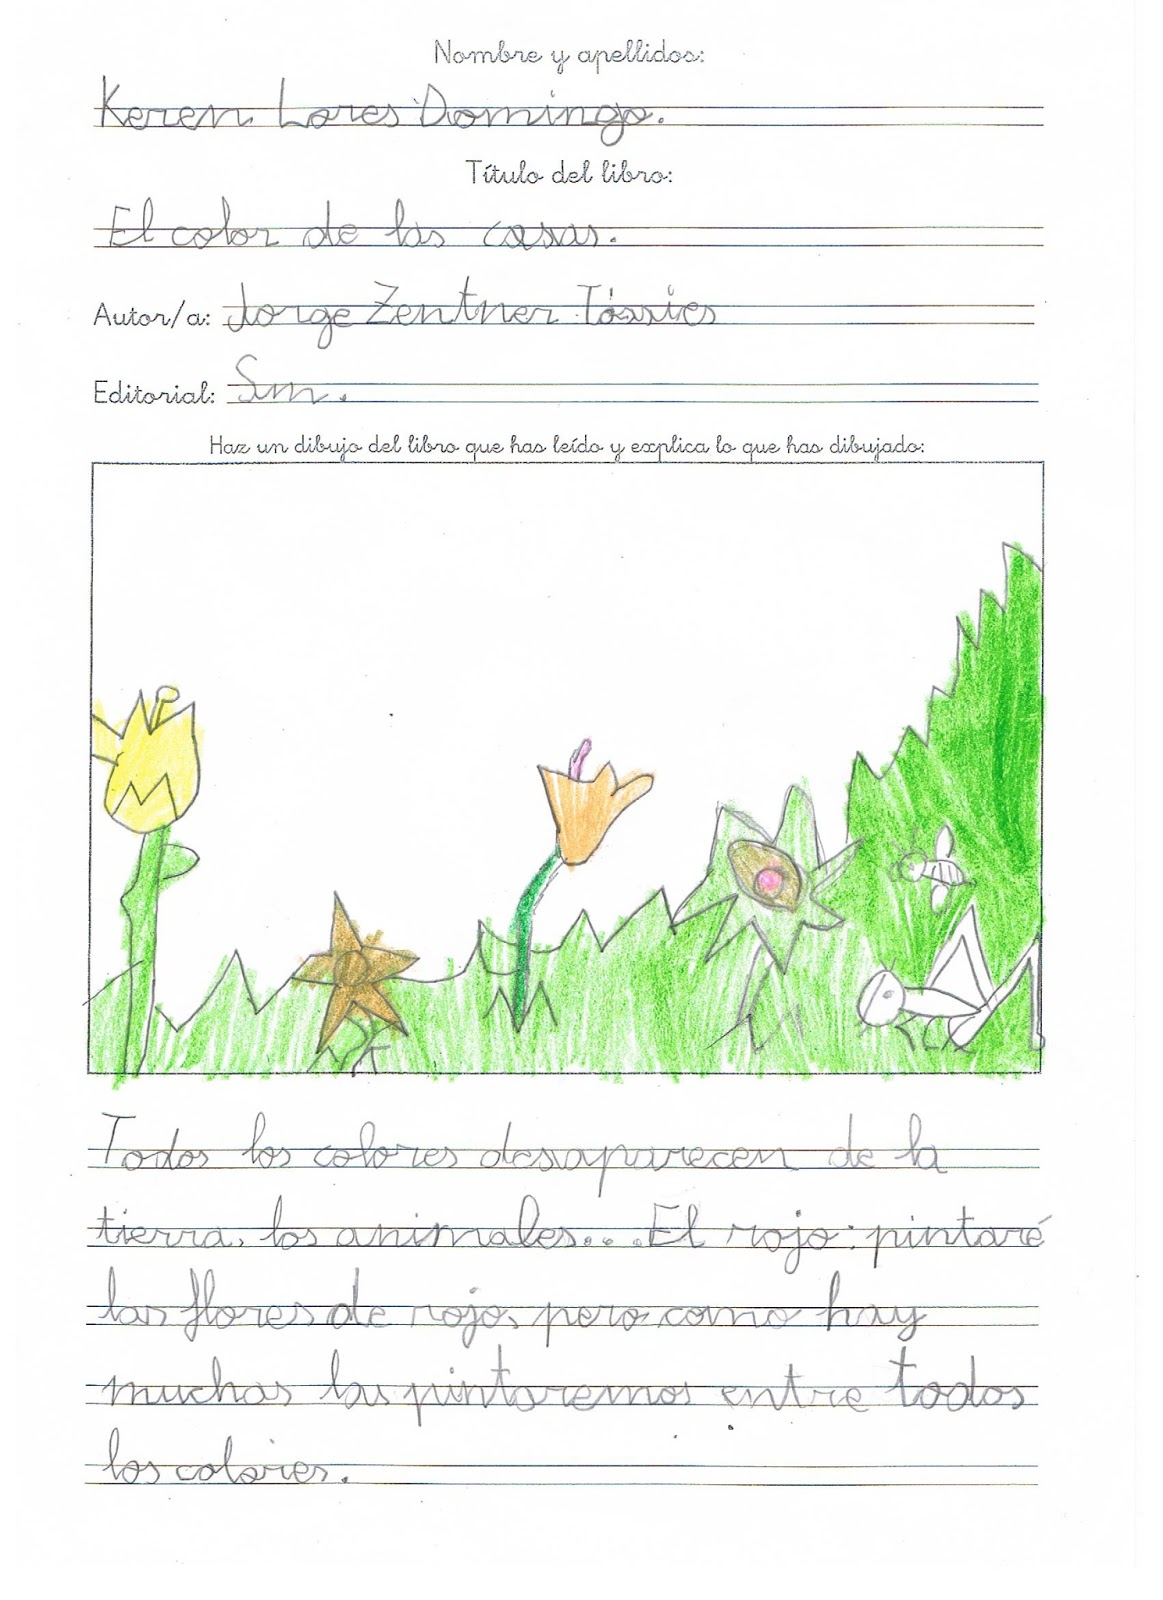 Nombre y apellidos:
Keren Lores Domingo.
Título del libro:
El color de las casas.
Autor/a: Jorge Zentner Tássies
Editorial: Sm.
Haz un dibujo del libro que has leído y explica lo que has dibujado:
Todos los colores desaparecen de la
tierra, los animales... El rojo: pintaré
las flores de rojo, pero como hay
muchas las pintaremos entre todos
los colores.